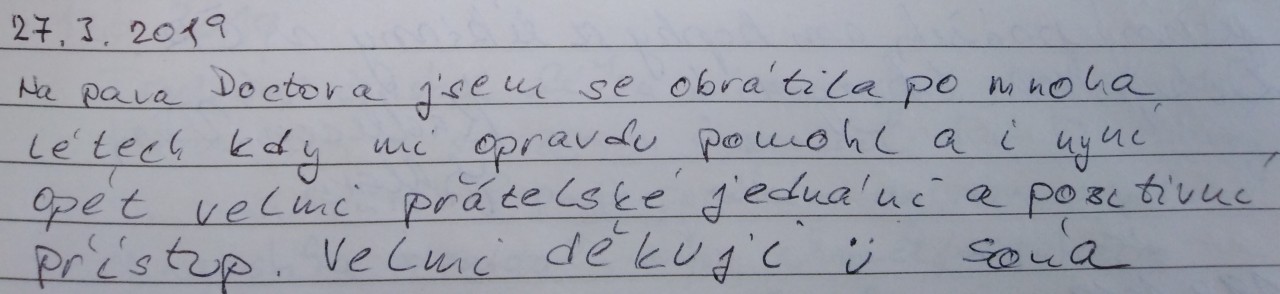 27. 3. 2019
Na pana Doctora jsem se obrátila po mnoha
létech kdy mi opravdu pomohl a i nyní
opět velmi přátelské jednání a pozitivní
přístup. Velmi děkuji ü Soňa